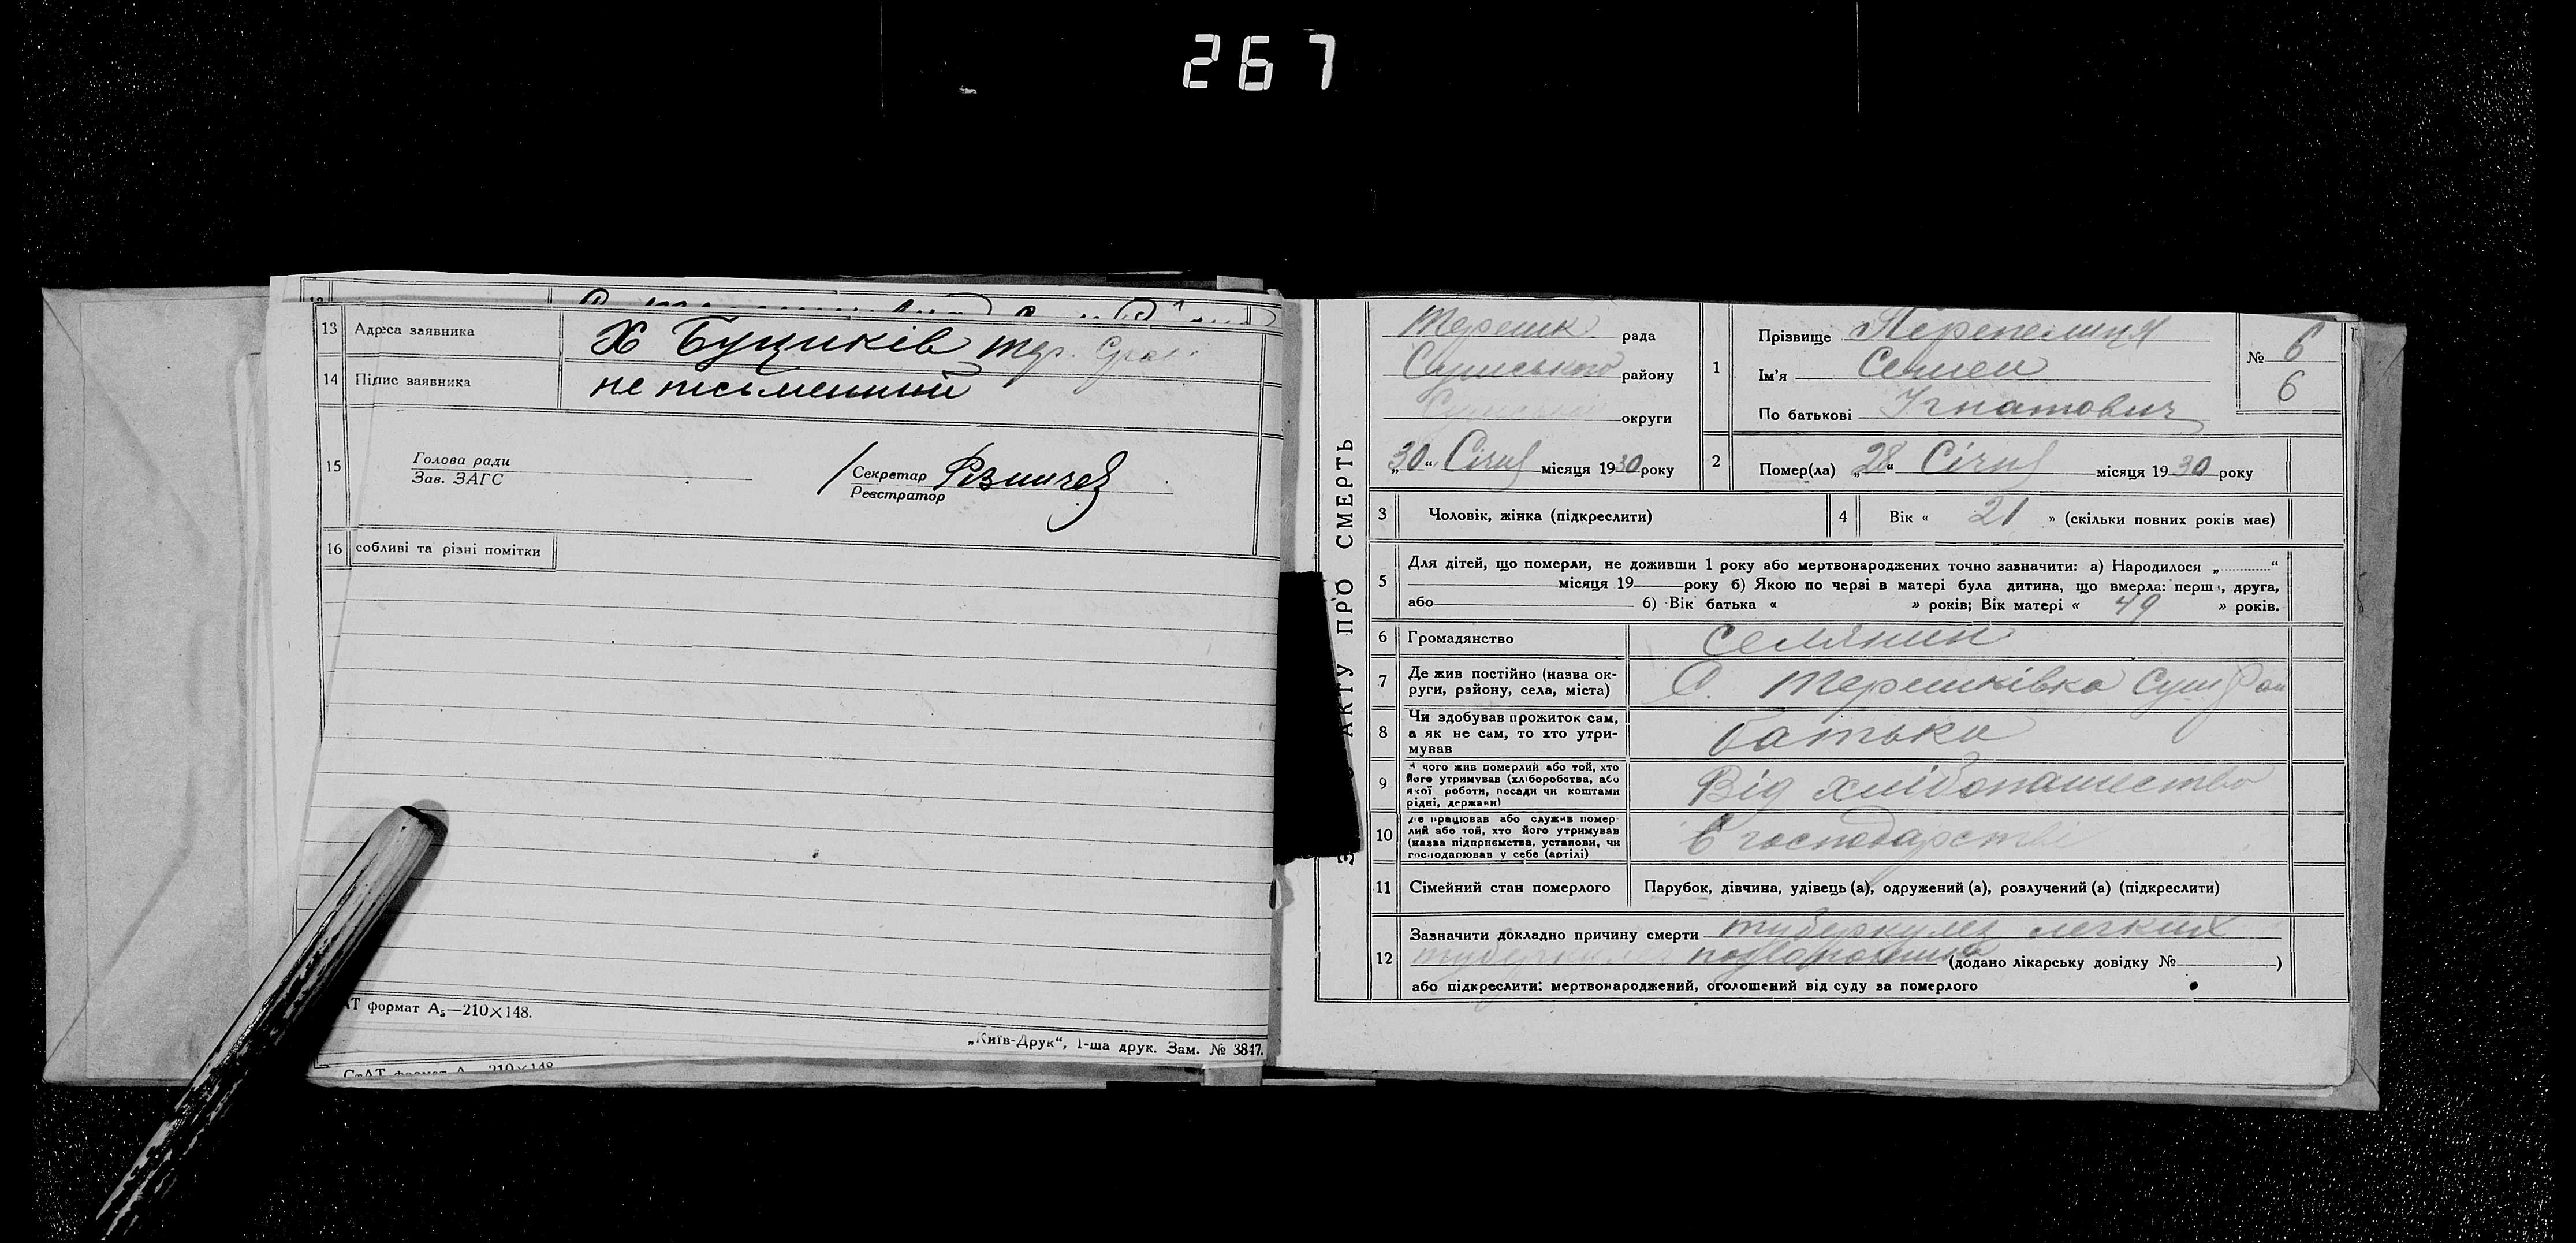 267
13 Адреса заявника Х Буциків тер. Срал
14 Підпис заявника не письменний
15 Голова ради
Зав. ЗАГС
Секретар
Реєстратор
16 собливі та різні помітки
АТ формат А₅—210×148.
„Київ-Друк“, 1-ша друк. Зам. № 3847.
СтАТ формат А 210×148
АКТУ ПРО СМЕРТЬ
Терешк рада
Сумського району
Сумської округи
„30“ Січня місяця 1930 року
1 Прізвище Перепелиця
Ім'я Семен
По батькові Ігнатович
№ 6
6
2 Помер(ла) „28“ Січня місяця 1930 року
3 Чоловік, жінка (підкреслити)
4 Вік « 21 » (скільки повних років має)
5 Для дітей, що померли, не доживши 1 року або мертвонароджених точно зазначити: а) Народилося „ “
місяця 19 року б) Якою по черзі в матері була дитина, що вмерла: перш, друга,
або б) Вік батька « » років; Вік матері « 49 » років.
6 Громадянство селянин
7 Де жив постійно (назва ок-
руги, району, села, міста) С. Терешківка Сум Рай
8 Чи здобував прожиток сам,
а як не сам, то хто утри-
мував батько
9 чого жив померлий або той, хто
його утримував (хліборобства, або
якої роботи, посади чи коштами
рідні, держави) Від хлібопашество
10 де працював або служив помер-
лий або той, хто його утримував
(назва підприємства, установи, чи
господарював у себе (артілі) в господарстві
11 Сімейний стан померлого Парубок, дівчина, удівець (а), одружений (а), розлучений (а) (підкреслити)
12 Зазначити докладно причину смерти туберкулез легких
туберкулез (додано лікарську довідку № )
або підкреслити: мертвонароджений, оголошений від суду за померлого